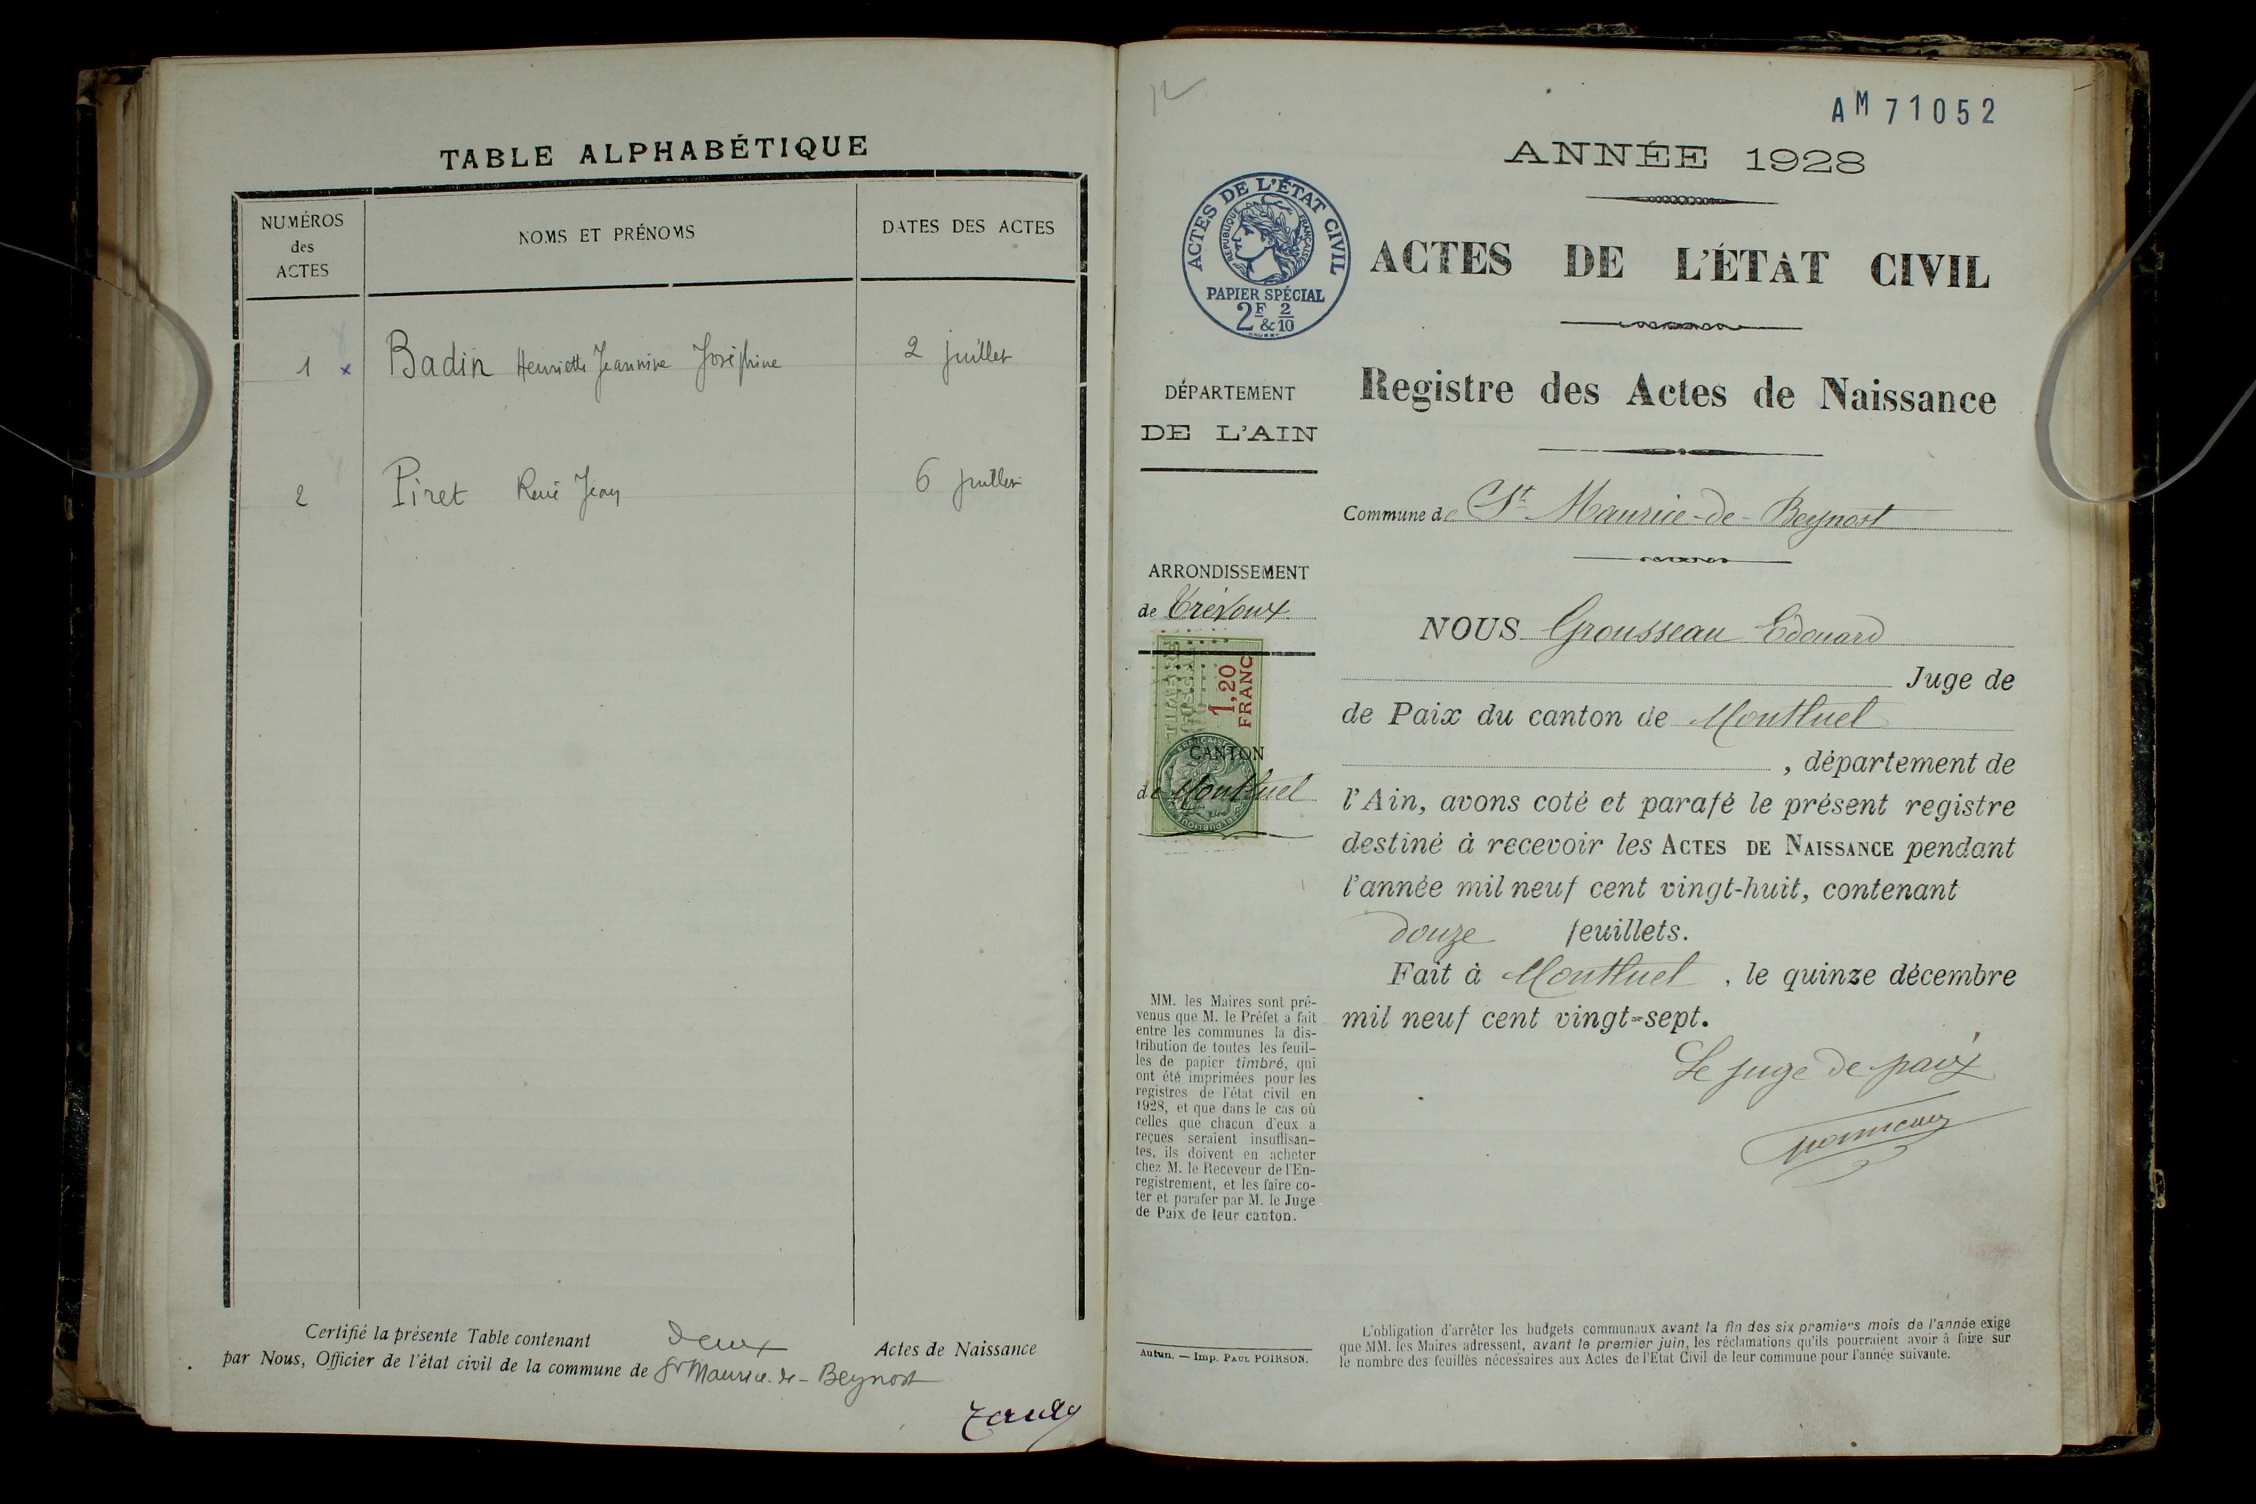 TABLE ALPHABÉTIQUE
NUMÉROS
des
ACTES
NOMS ET PRÉNOMS
DATES DES ACTES
1 x Badin Henriette Jeannine Joséphine 2 juillet
2 Piret René Jean 6 juillet
Certifié la présente Table contenant deux Actes de Naissance
par Nous, Officier de l'état civil de la commune de St Maurice-de-Beynost
12
AM 71052
ANNÉE 1928
ACTES DE L'ÉTAT CIVIL
RÉPUBLIQUE FRANÇAISE
PAPIER SPÉCIAL
2F & 2/10
ACTES DE L'ÉTAT CIVIL
Registre des Actes de Naissance
DÉPARTEMENT
DE L'AIN
Commune de St Maurice-de-Beynost
ARRONDISSEMENT
de Trévoux
TIMBRE
FISCAL
1,20
FRANC
CANTON
de Montluel
NOUS Grousseau Edouard
Juge de
de Paix du canton de Montluel
, département de
l'Ain, avons coté et parafé le présent registre
destiné à recevoir les ACTES DE NAISSANCE pendant
l'année mil neuf cent vingt-huit, contenant
douze feuillets.
Fait à Montluel, le quinze décembre
mil neuf cent vingt-sept.
Le juge de paix
MM. les Maires sont pré-
venus que M. le Préfet a fait
entre les communes la dis-
tribution de toutes les feuil-
les de papier timbré, qui
ont été imprimées pour les
registres de l'état civil en
1928, et que dans le cas où
celles que chacun d'eux a
reçues seraient insuffisan-
tes, ils doivent en acheter
chez M. le Receveur de l'En-
registrement, et les faire co-
ter et parafer par M. le Juge
de Paix de leur canton.
Autun. — Imp. PAUL POIRSON.
L'obligation d'arrêter les budgets communaux avant la fin des six premiers mois de l'année exige
que MM. les Maires adressent, avant le premier juin, les réclamations qu'ils pourraient avoir à faire sur
le nombre des feuilles nécessaires aux Actes de l'État Civil de leur commune pour l'année suivante.